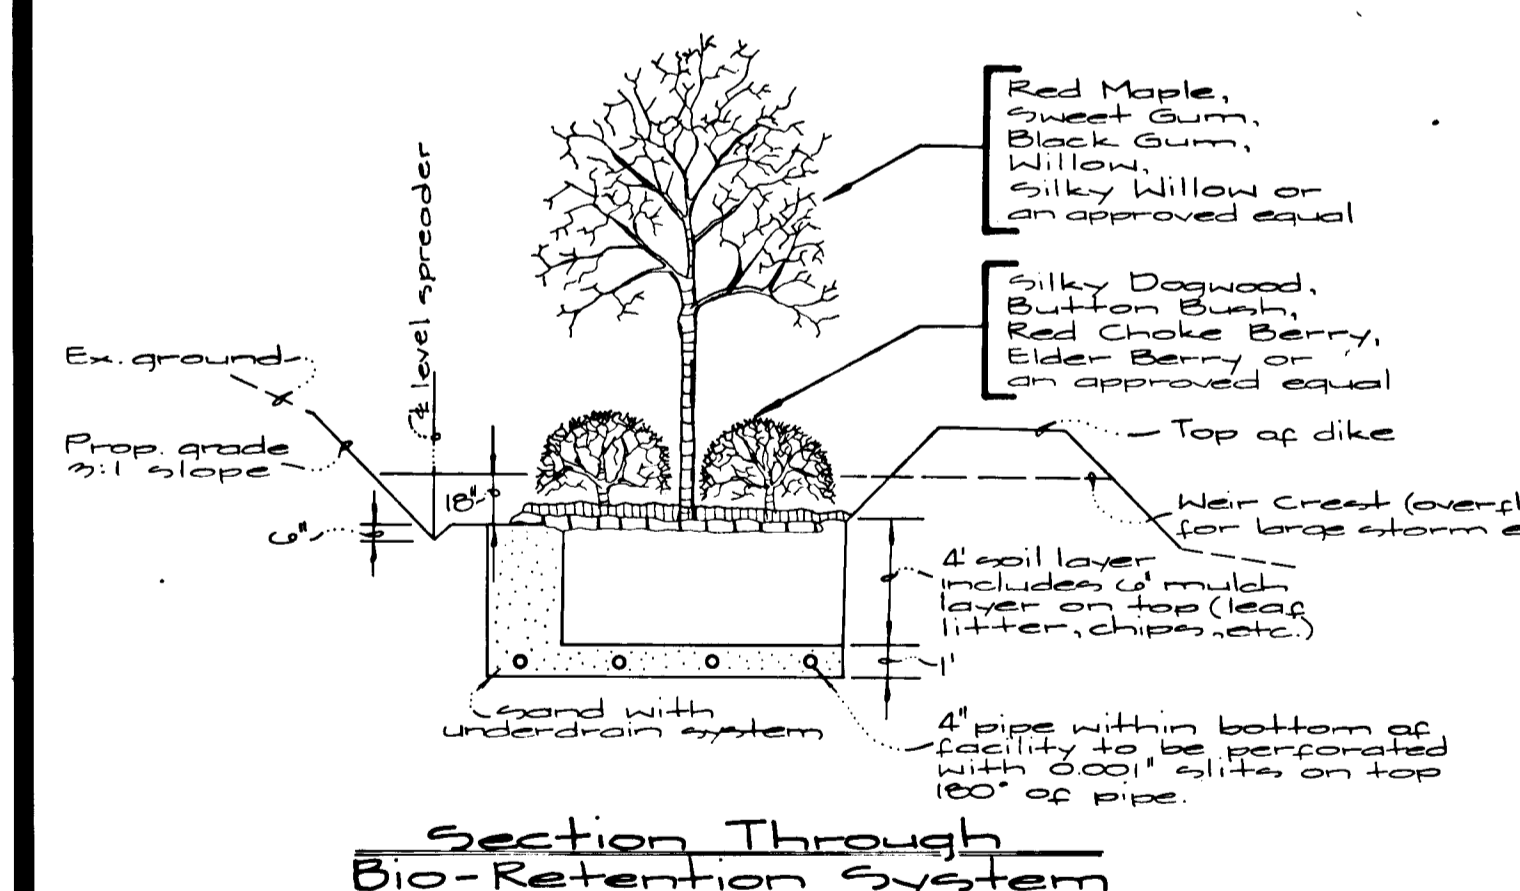 Red Maple,
Sweet Gum,
Black Gum,
Willow,
Silky Willow or
an approved equal
Silky Dogwood,
Button Bush,
Red Choke Berry,
Elder Berry or
an approved equal
℄ level spreader
Ex. ground
Prop. grade
3:1 slope
18"
6"
Top of dike
Weir Crest (overfl
for large storm e
4' soil layer
includes 6" mulch
layer on top (leaf
litter, chips, etc.)
1'
sand with
underdrain system
4" pipe within bottom of
facility to be perforated
with 0.001" slits on top
180° of pipe.
Section Through
Bio-Retention System